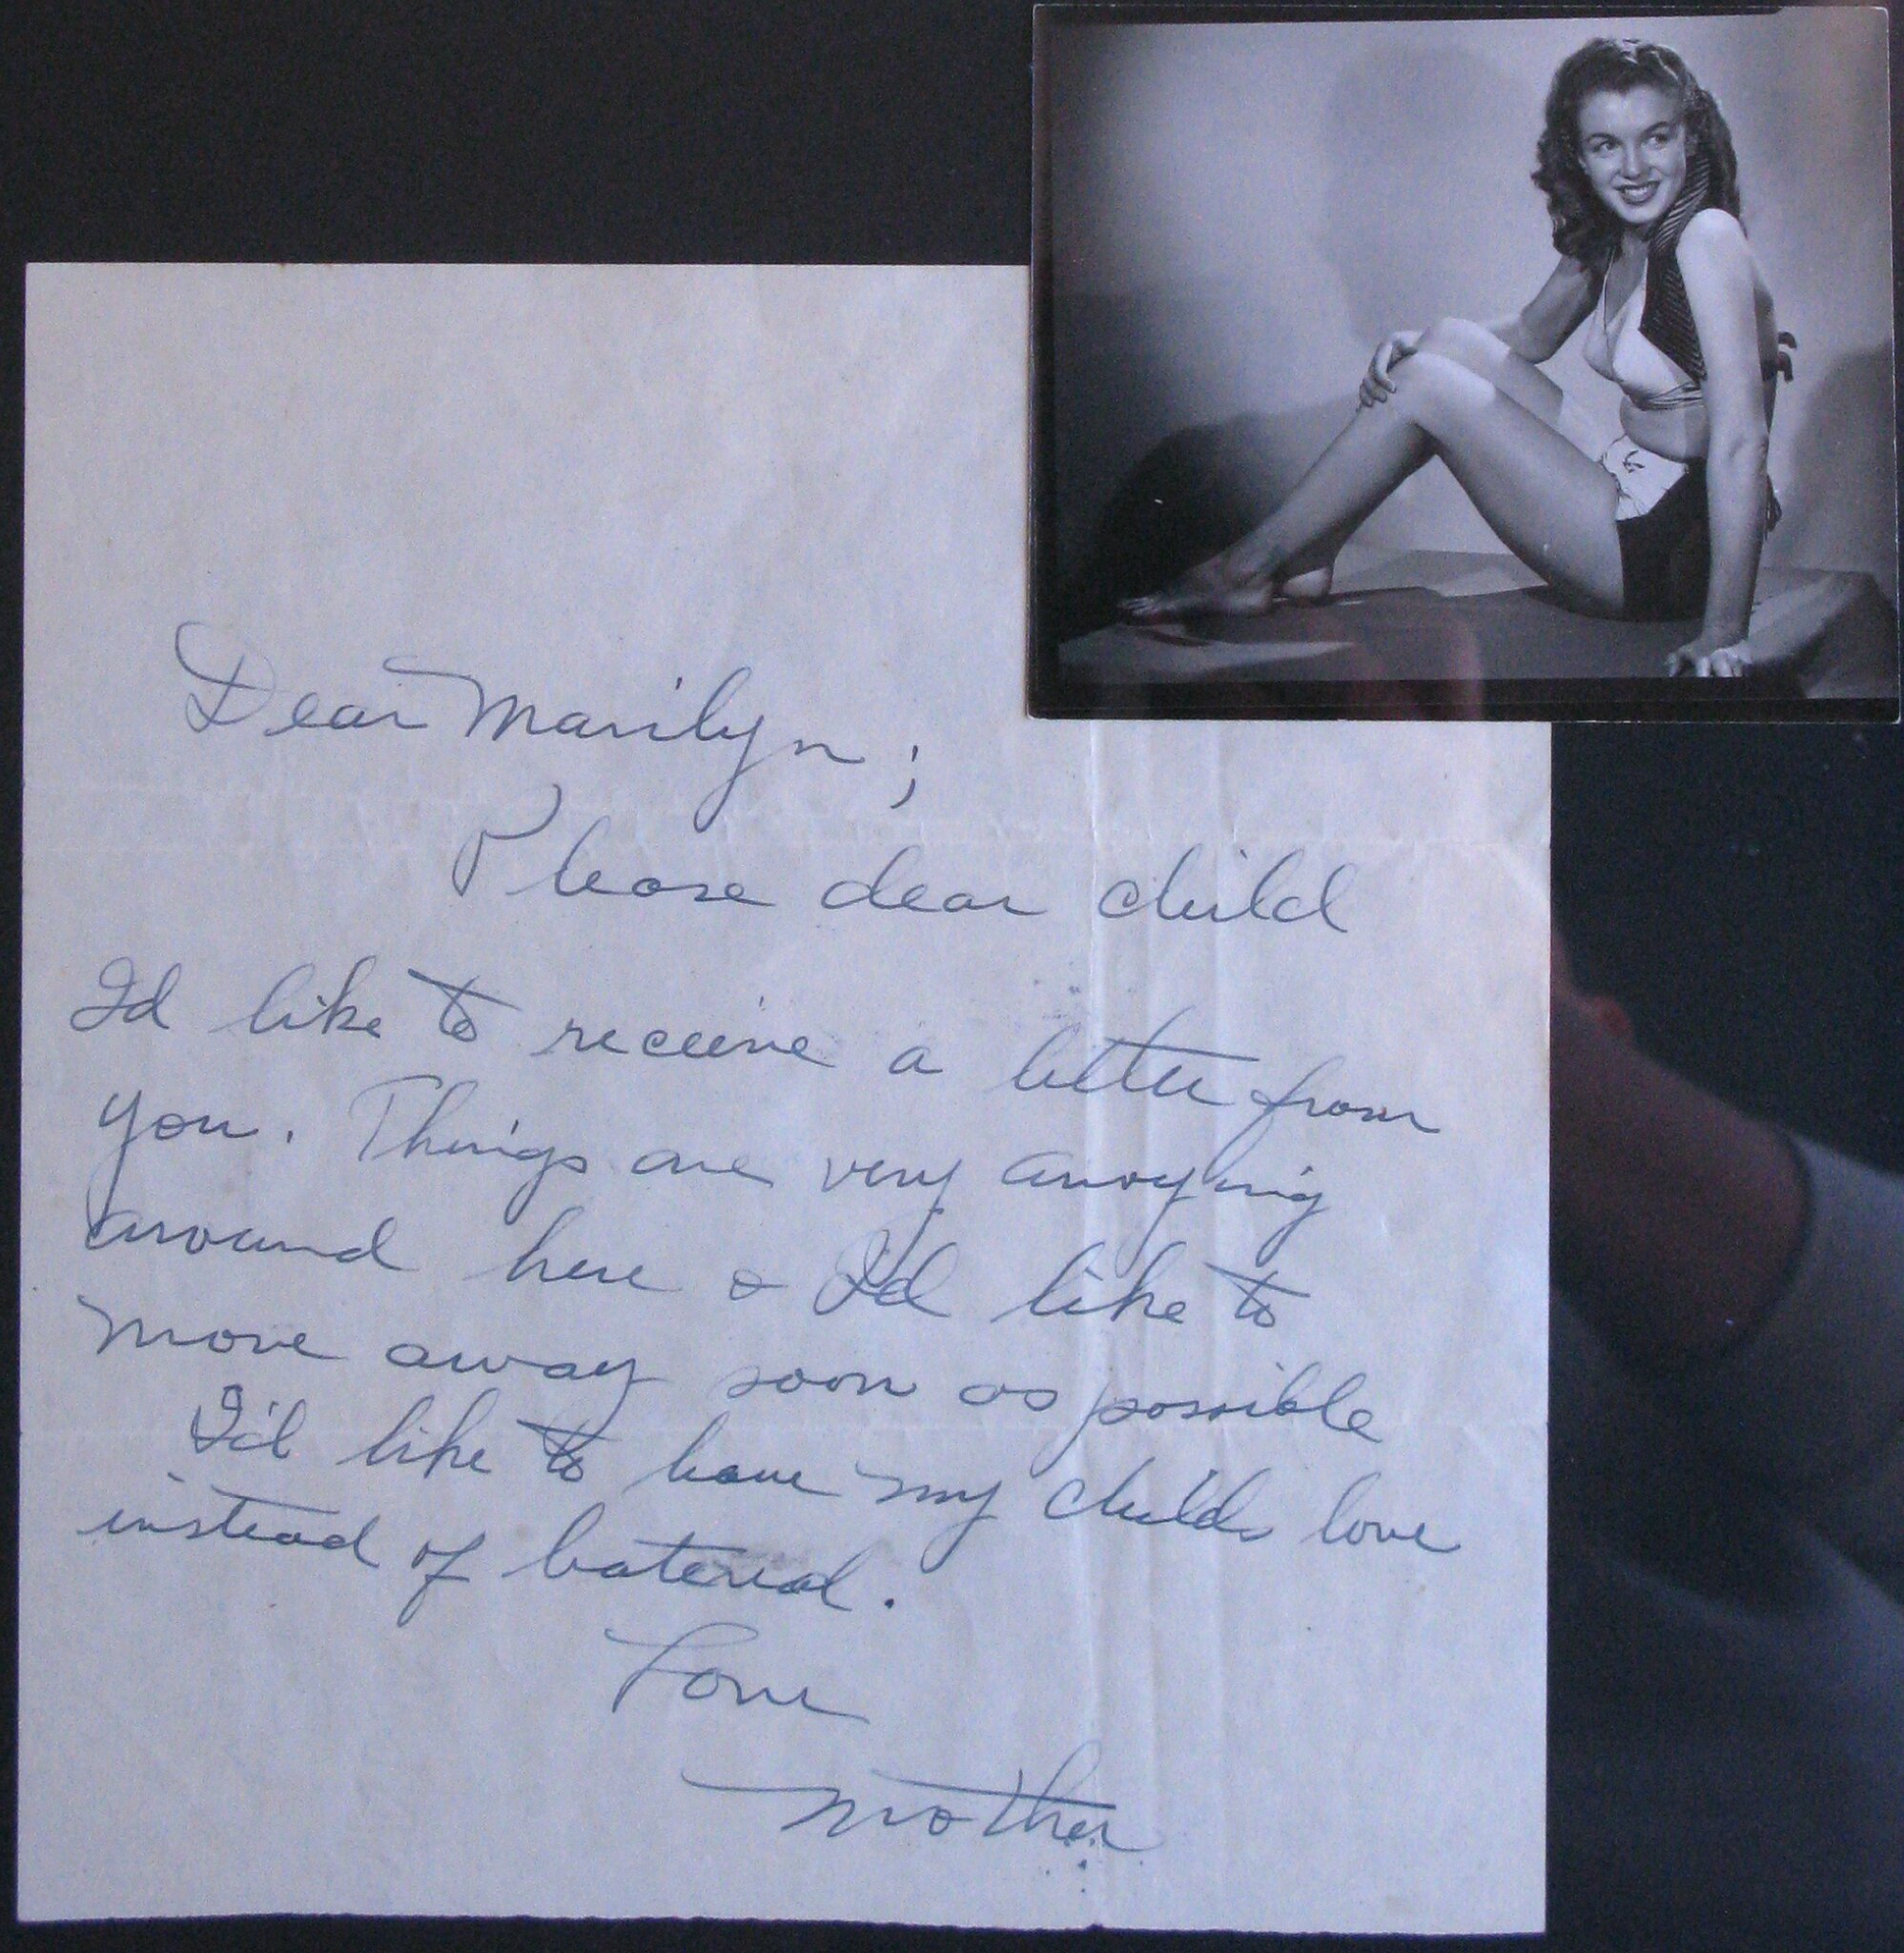 Dear Marilyn;
Please dear child
I'd like to receive a letter from
you. Things are very anoying
around here & I'd like to
move away soon as possible
I'd like to have my childs love
instead of hatered.
Love
Mother